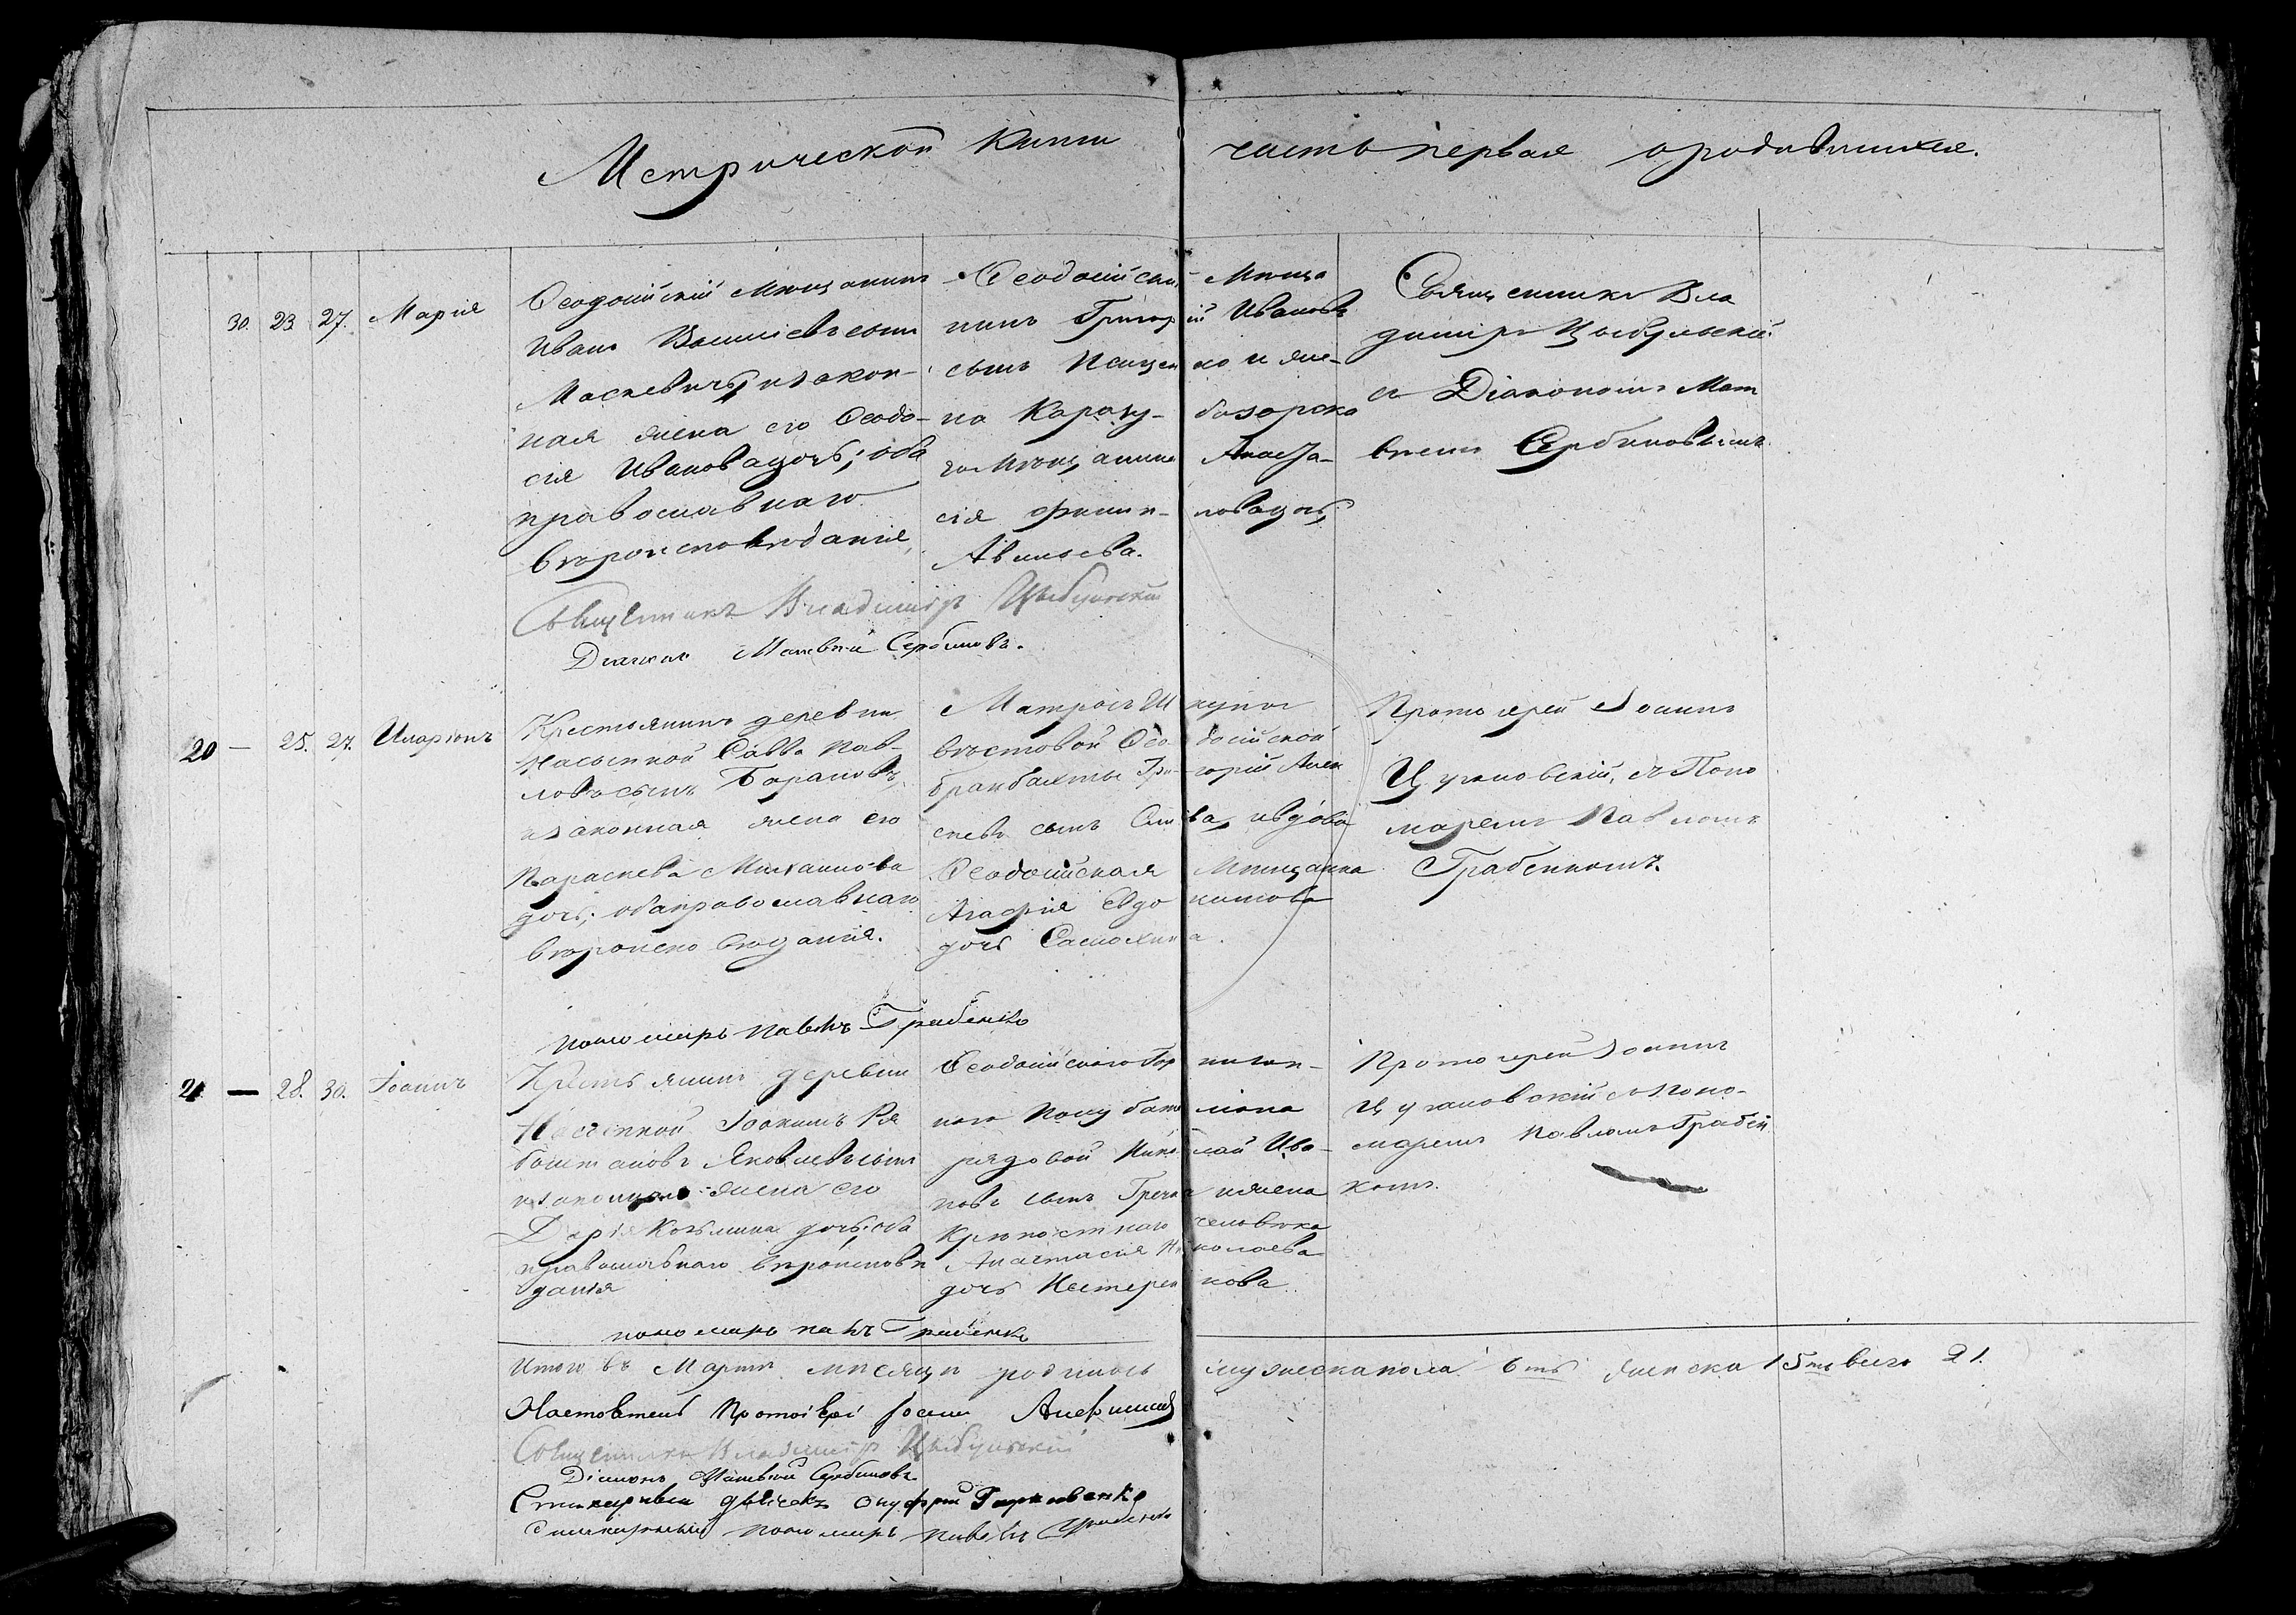 Метрической книги часть первая о родившихся.
30. 23 27. Марія
Ѳеодосійскій Мѣщанинъ
Иванъ Васильевъ сынъ
Маскевичъ, и закон-
ная жена его Ѳеодо-
сія Иванова дочь; оба
православнаго
вѣроисповѣданія,
Ѳеодосійскій Мѣща
нинъ Григорій Ивановъ
сынъ и же-
на Карасу-базарска
го Мѣщанина Анаста-
сія Филип-пова дочь,
Авильева.
Священникъ Вла
димиръ Цыбульскій
съ Діакономъ Мат
вѣемъ Сербиновымъ.
Священникъ Владимиръ Цыбульскій
Діаконъ Матвѣй Сербиновъ.
20 — 25. 27. Иларіонъ
Крестьянинъ деревни
Насыпной Савва Пав-
ловъ сынъ Барановъ,
и законная жена его
Параскева Михаилова
дочь; оба православнаго
вѣроисповѣданія.
Матросъ Шкуны
вѣстовой Ѳеодосійской
брандвахты Григорій Алек
сѣевъ сынъ и вдова
Ѳеодосійская Мѣщанка
Агафія Евдокимова
дочь Самохина.
Протоіерей Іоаннъ
Цугановскій, съ Поно
маремъ Павломъ
Грабенкомъ.
пономарь Павелъ Грабенко
21 — 28. 30. Іоаннъ
Крестьянинъ деревни
Насыпной Іоакимъ Ря
боштановъ Яковлевъ сынъ
и законная жена его
Дарія Козьмина дочь; оба
православнаго вѣроисповѣ
данія
Ѳеодосійскаго Гарнизон-
наго Полубаталіона
рядовой Николай Ива-
новъ сынъ и жена
крѣпостнаго человѣка
Анастасія Николаева
дочь Нестеренкова.
Протоіерей Іоаннъ
Цугановскій съ Поно-
маремъ Павломъ Грабен
комъ.
пономарь Павелъ Грабенко
Итого въ Мартѣ мѣсяцѣ родилось мужеска пола 6ть женска 15ть всего 21.
Настоятель Протоіерей Іоаннъ
Священникъ Владимиръ Цыбульскій
Діаконъ Матвѣй Сербиновъ
Стихарный дьячекъ Онуфрій
Стихарный пономарь Павелъ Грабенко